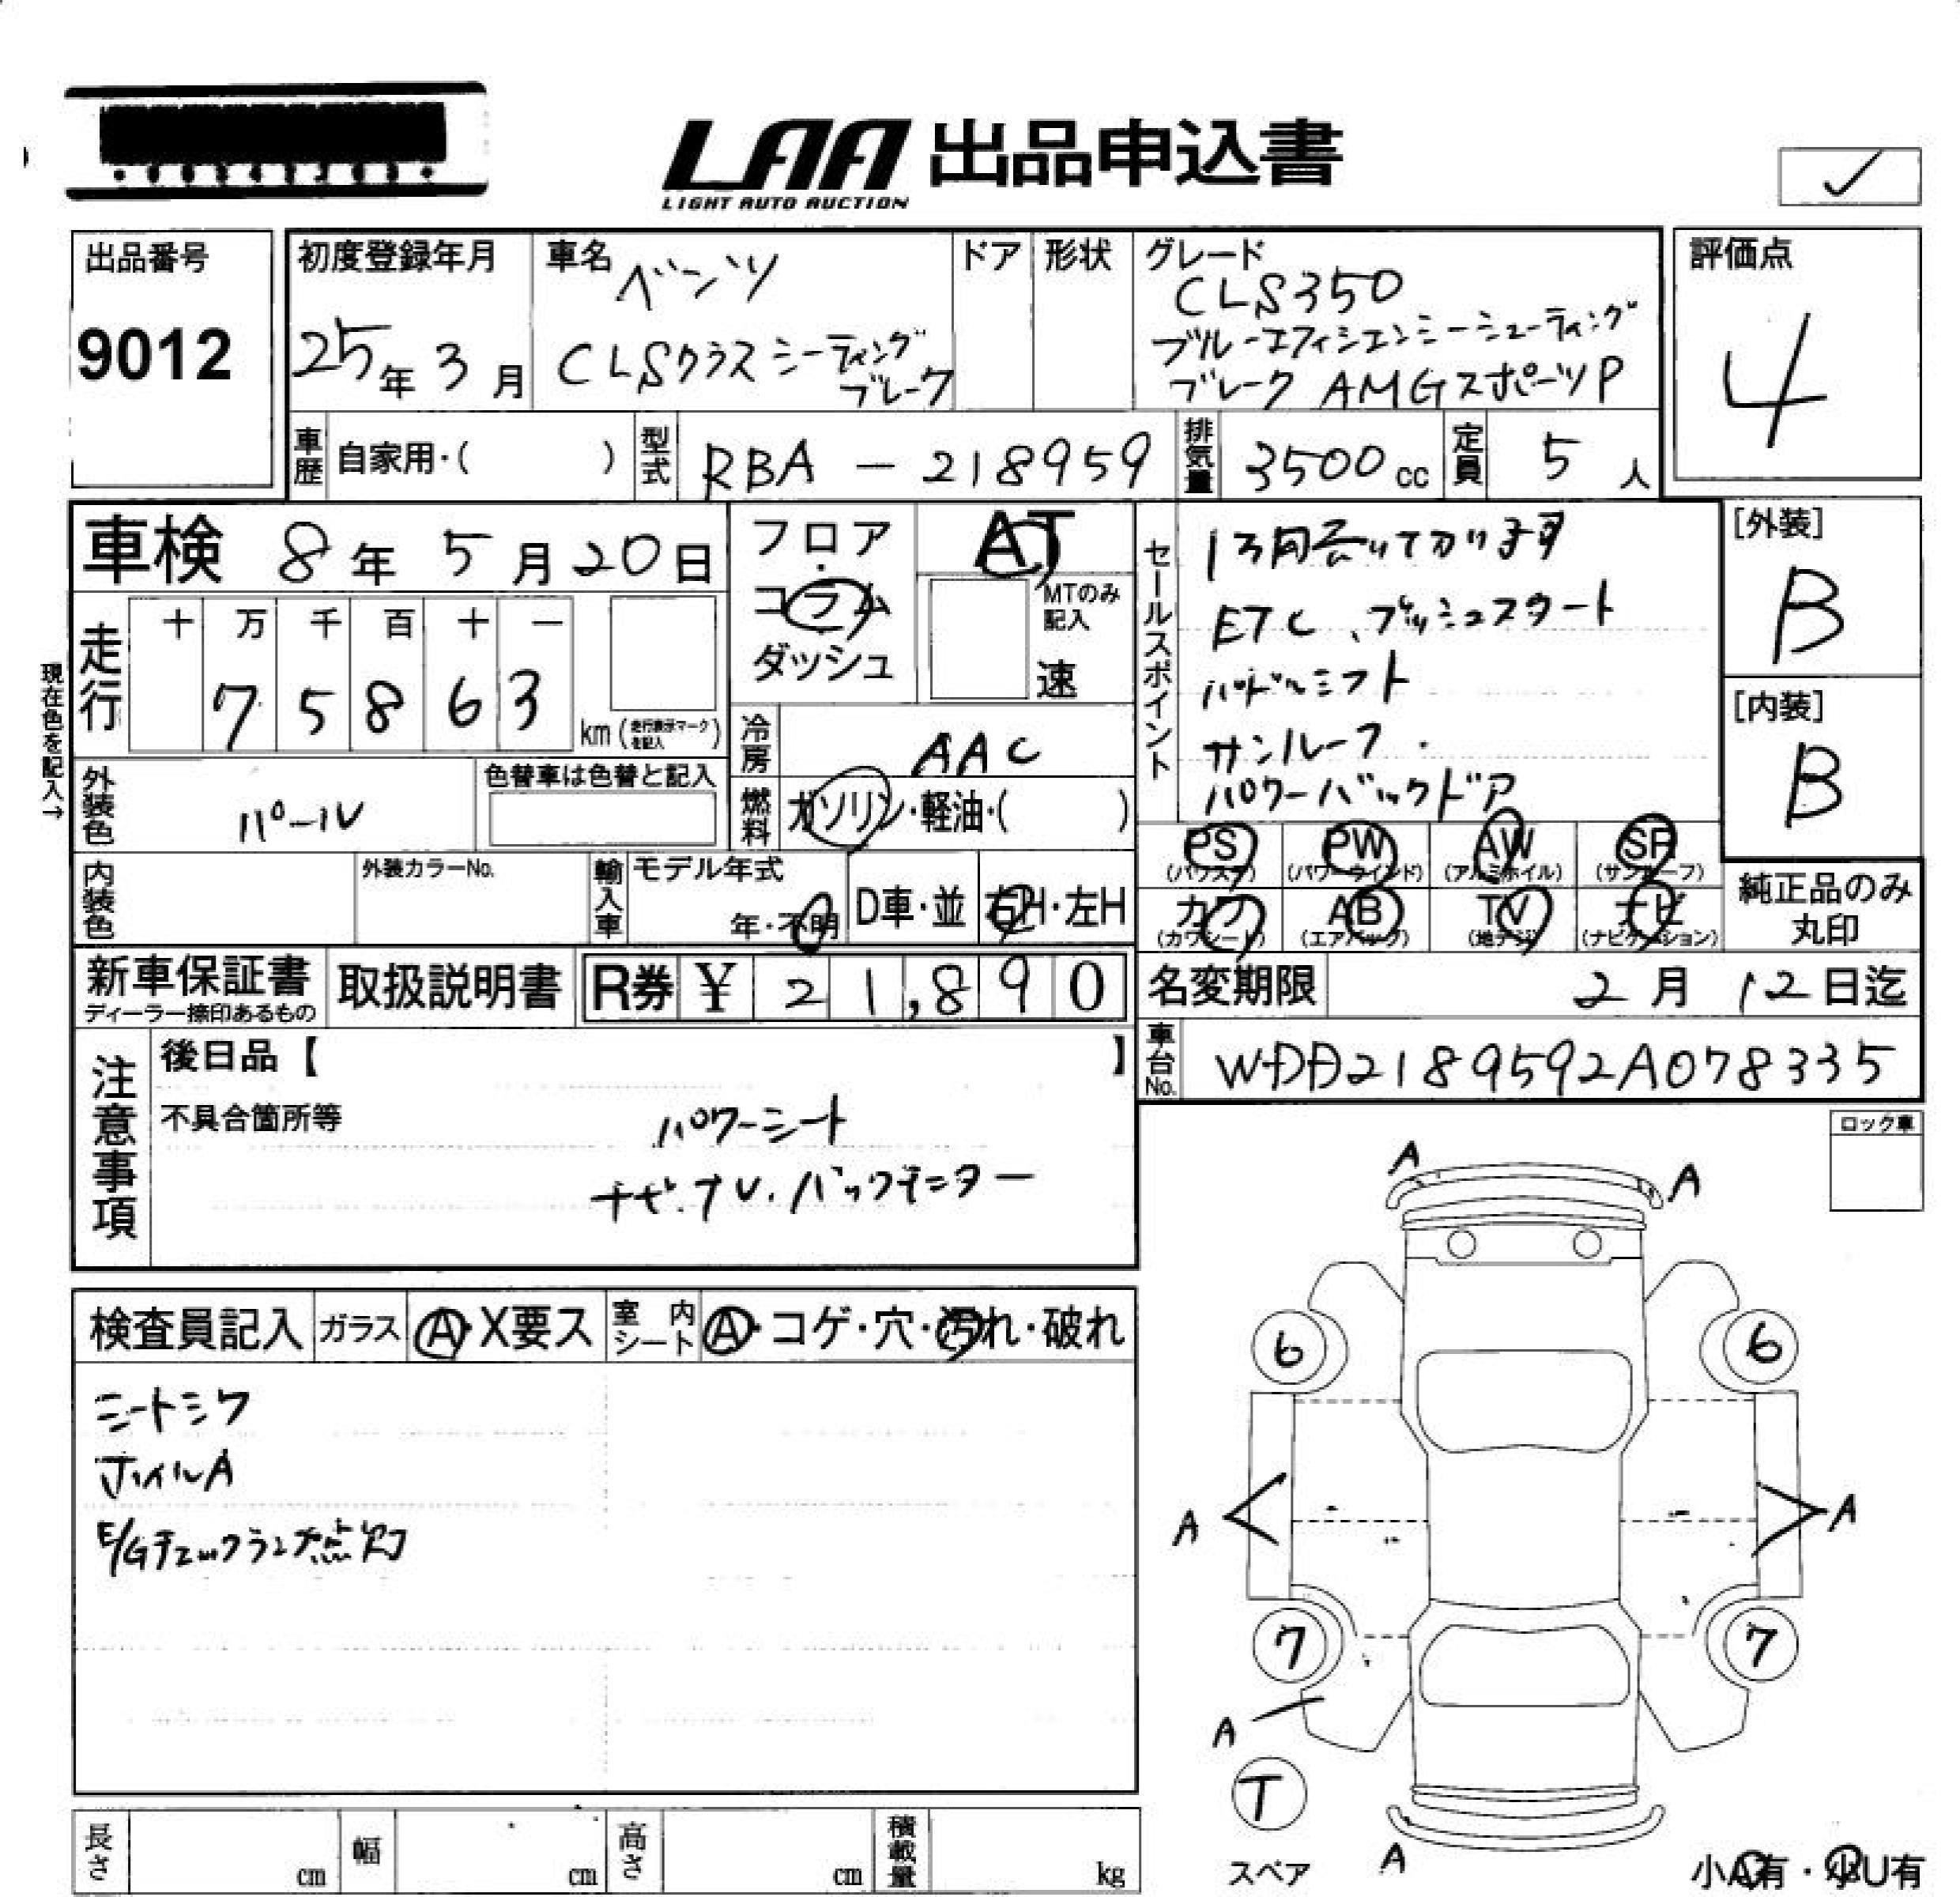 LAA 出品申込書
LIGHT AUTO AUCTION
✓
出品番号
9012
初度登録年月
25年 3月
車名
ベンツ
CLSクラス シューティング
ブレーク
ドア
形状
グレード
CLS350
ブルーエフィシエンシーシューティング
ブレーク AMGスポーツP
評価点
4
車歴 自家用・( )
型式 RBA - 218959
排気量 3500cc
定員 5人
車検 8年 5月 20日
フロア
コラム
ダッシュ
AT
MTのみ
記入
速
セールスポイント
ETC、プッシュスタート
パドルシフト
サンルーフ
パワーバックドア
[外装]
B
[内装]
B
現在色を記入→
走行
十 万 千 百 十 一
7 5 8 6 3
km (走行表示マークを記入)
冷房 AAC
外装色 パール
色替車は色替と記入
燃料 ガソリン・軽油・( )
内装色
外装カラーNo.
輸入車
モデル年式
年・不明
D車・並
右H・左H
PS (パワステ)
PW (パワーウインド)
AW (アルミホイル)
SR (サンルーフ)
カワ (カワシート)
AB (エアバッグ)
TV (地デジ)
ナビ (ナビゲーション)
純正品のみ
丸印
新車保証書
ディーラー捺印あるもの
取扱説明書
R券 ¥ 21,890
名変期限 2月 12日迄
車台No. WDD2189592A078335
注意事項
後日品【 】
不具合箇所等
パワーシート
ナビ.TV.バックモニター
ロック車
検査員記入
ガラス A・X要ス
室内シート A・コゲ・穴・汚れ・破れ
シートシワ
ホイルA
E/Gチェックランプ点灯
A A
6 6
A A
7 7
A
T
スペア
A
小A有・小U有
長さ cm
幅 cm
高さ cm
積載量 kg